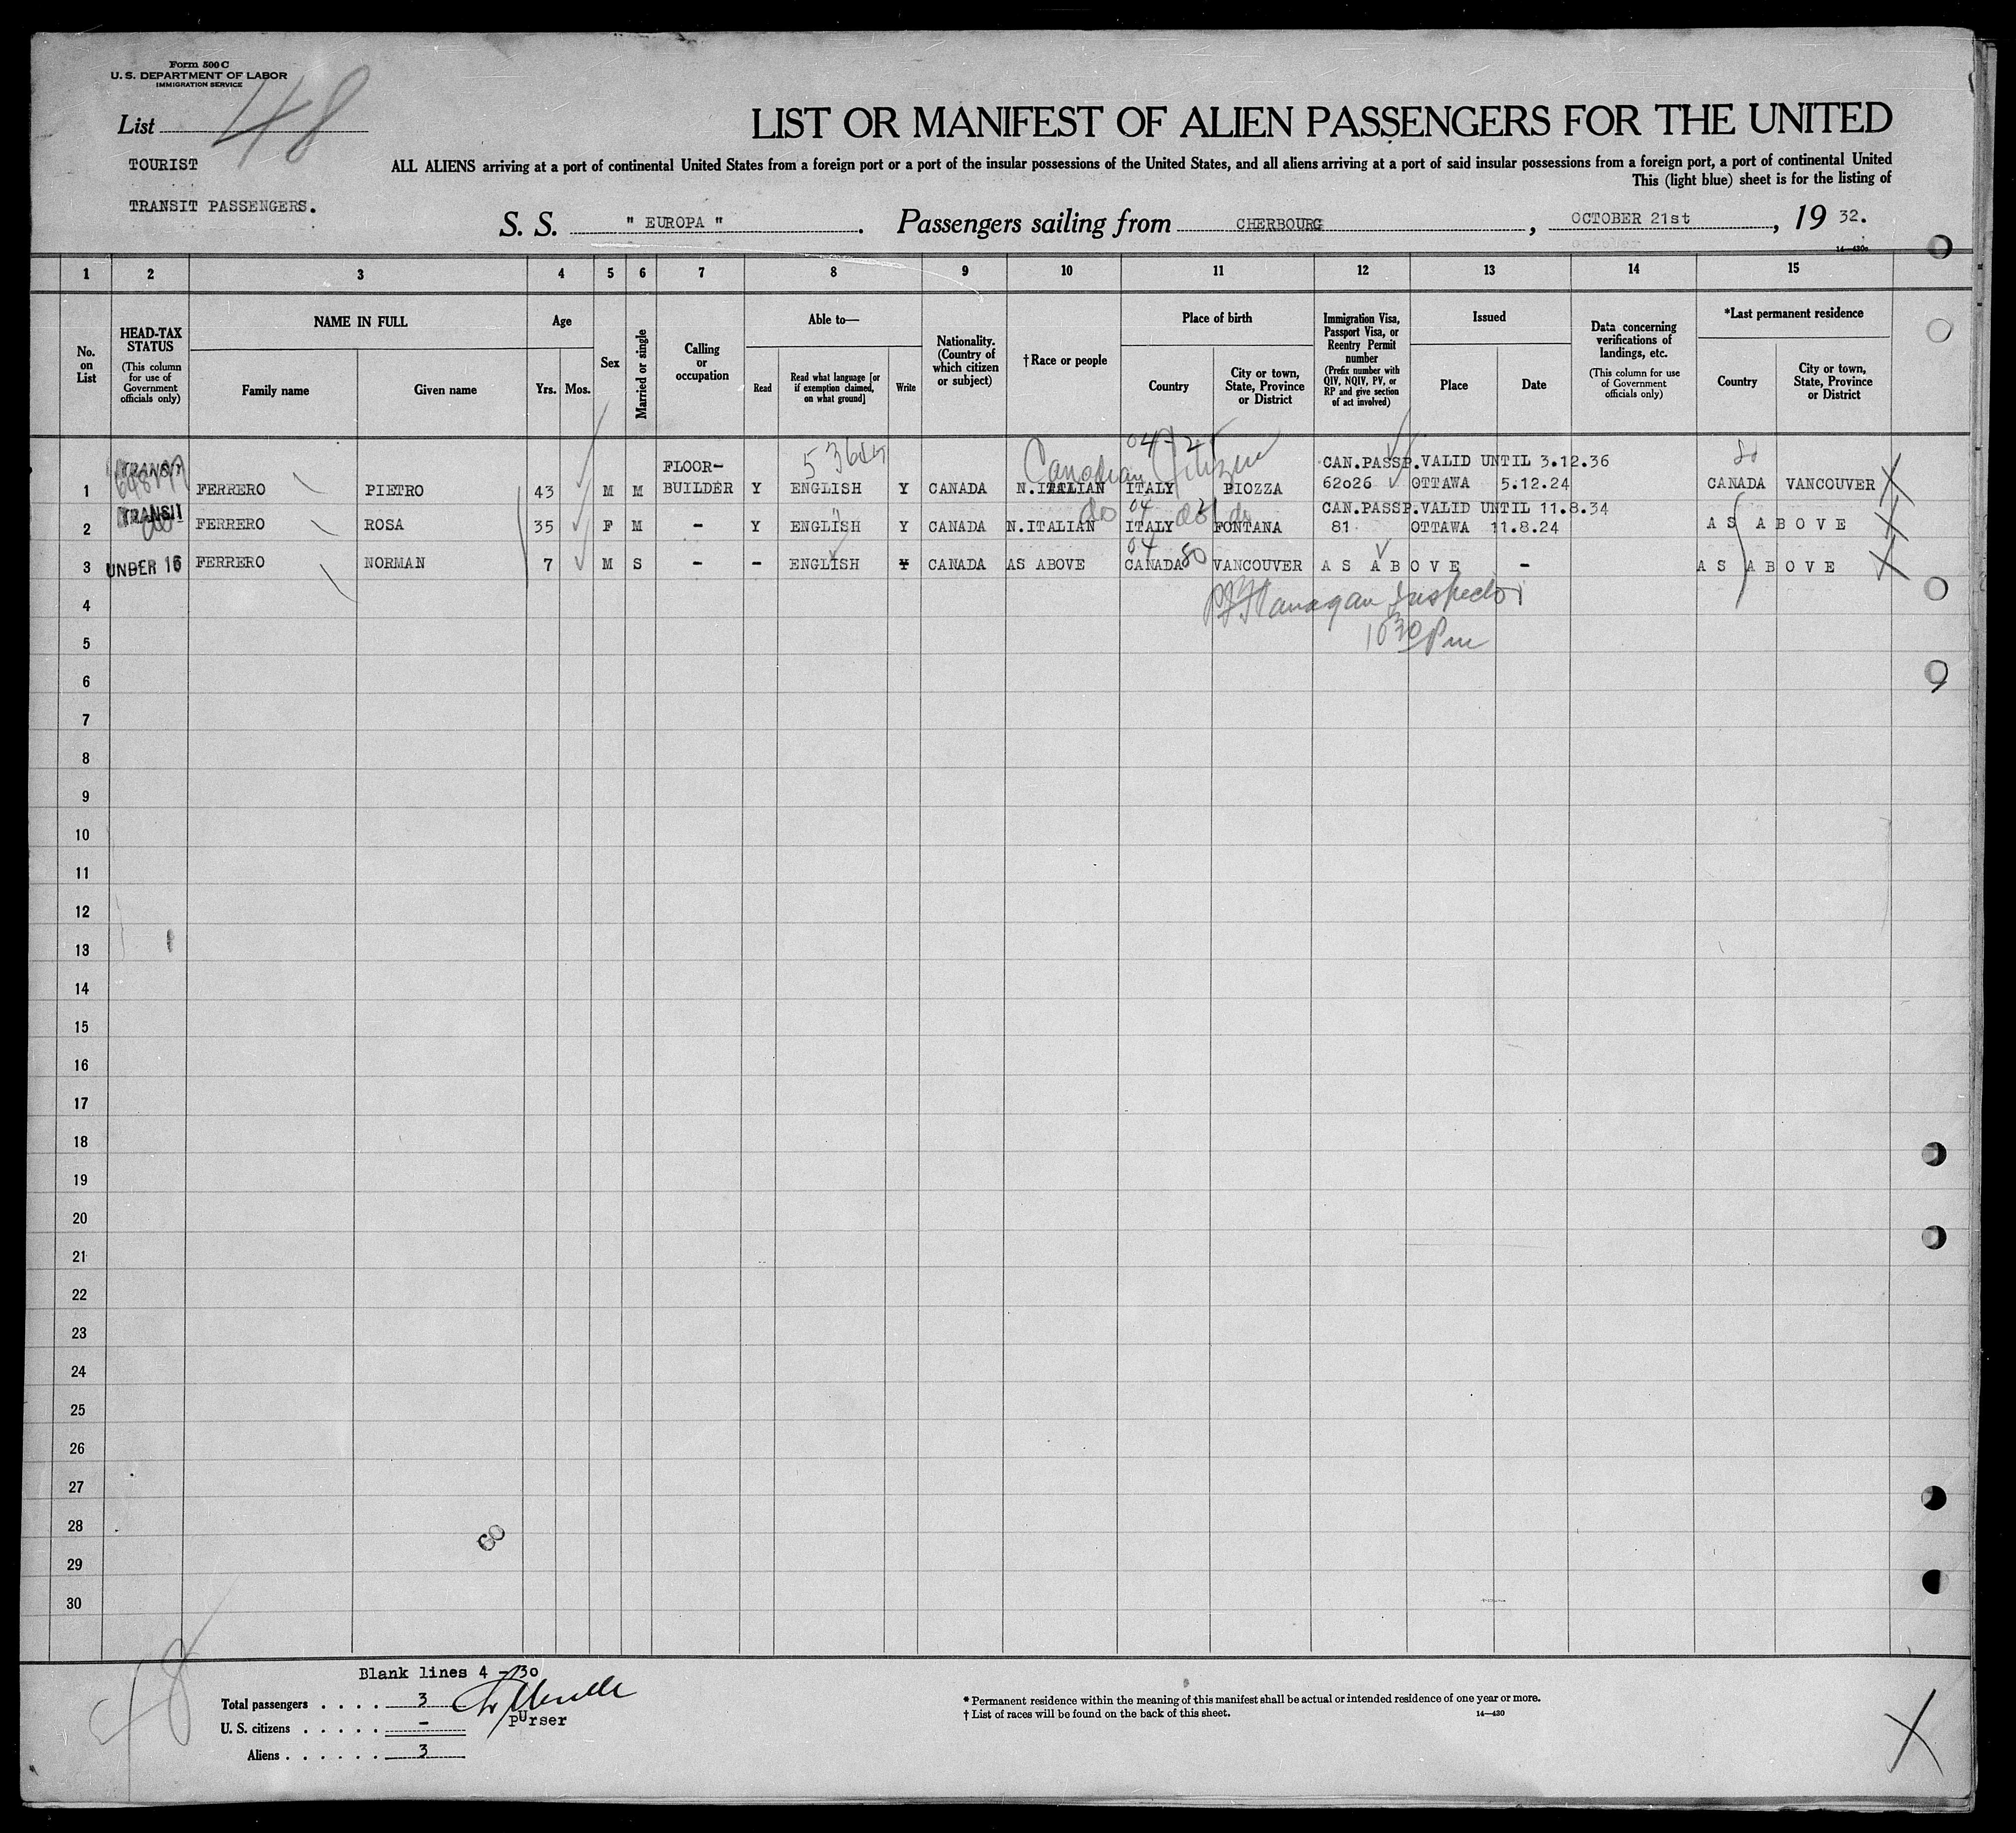 Form 500 C
U. S. DEPARTMENT OF LABOR
IMMIGRATION SERVICE
List 48
LIST OR MANIFEST OF ALIEN PASSENGERS FOR THE UNITED
TOURIST
TRANSIT PASSENGERS.
ALL ALIENS arriving at a port of continental United States from a foreign port or a port of the insular possessions of the United States, and all aliens arriving at a port of said insular possessions from a foreign port, a port of continental United
This (light blue) sheet is for the listing of
S. S. " EUROPA ". Passengers sailing from CHERBOURG, OCTOBER 21st, 19 32.
14—430a
1 2 3 4 5 6 7 8 9 10 11 12 13 14 15
No. on List
HEAD-TAX STATUS (This column for use of Government officials only)
NAME IN FULL
Family name
Given name
Age
Yrs. Mos.
Sex
Married or single
Calling or occupation
Able to—
Read
Read what language [or if exemption claimed, on what ground]
Write
Nationality. (Country of which citizen or subject)
†Race or people
Place of birth
Country
City or town, State, Province or District
Immigration Visa, Passport Visa, or Reentry Permit number (Prefix number with QIV, NQIV, PV, or RP and give section of act involved)
Issued
Place
Date
Data concerning verifications of landings, etc. (This column for use of Government officials only)
*Last permanent residence
Country
City or town, State, Province or District
Canadian Citizen
TRANSIT FLOOR- CAN.PASSP.VALID UNTIL 3.12.36
1 FERRERO PIETRO 43 M M BUILDER Y ENGLISH Y CANADA N.ITALIAN ITALY PIOZZA 62026 OTTAWA 5.12.24 CANADA VANCOUVER X
TRANSIT do 04 do do CAN.PASSP.VALID UNTIL 11.8.34
2 FERRERO ROSA 35 F M - Y ENGLISH Y CANADA N.ITALIAN ITALY FONTANA 81 OTTAWA 11.8.24 AS ABOVE X
3 UNDER 16 FERRERO NORMAN 7 M S - - ENGLISH CANADA AS ABOVE CANADA 80 VANCOUVER AS ABOVE - AS ABOVE X
4
Flanagan Inspector
5
10 30 Pm
6
7
8
9
10
11
12
13
14
15
16
17
18
19
20
21
22
23
24
25
26
27
28
60
29
30
48
Blank lines 4 - 30
Total passengers . . . . 3
U. S. citizens . . . . . -
Aliens . . . . . . 3
pUrser
* Permanent residence within the meaning of this manifest shall be actual or intended residence of one year or more.
† List of races will be found on the back of this sheet.
14—430
X